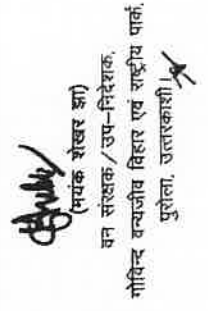 (मयंक शेखर झा)
वन संरक्षक/उप-निदेशक,
गोविन्द वन्यजीव विहार एवं राष्ट्रीय पार्क,
पुरोला, उत्तरकाशी।